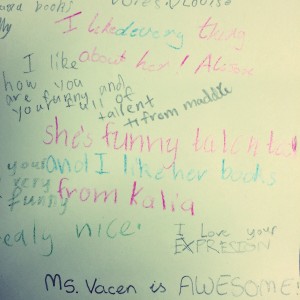 books
I like every thing
about her!
I like
how you
are funny and
you full of
talent
from maddie
she's funny
and I like her books
from Kalia
your
very
funny
realy nice.
I Love your
EXPRESION
Ms. Vacen is AWESOME!